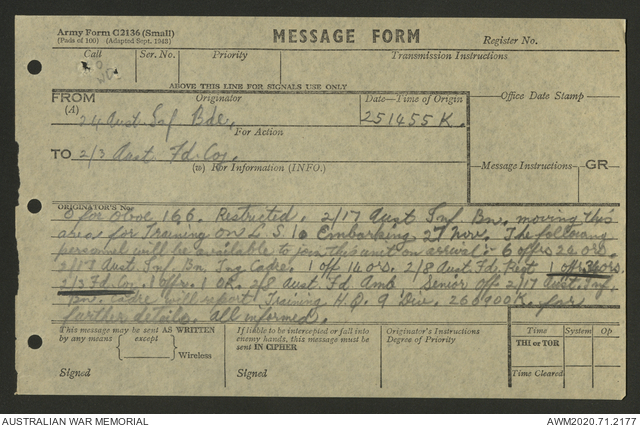 Army Form C2136 (Small)
(Pads of 100)—(Adapted Sept. 1943)
MESSAGE FORM
Register No.
Call
Ser. No.
Priority
Transmission Instructions
ABOVE THIS LINE FOR SIGNALS USE ONLY
FROM
(A)
Originator
Date—Time of Origin
Office Date Stamp
24 Aust Inf Bde.
251455K.
For Action
TO 2/3 Aust Fd. Coy.
(W) For Information (INFO.)
Message Instructions
GR
ORIGINATOR'S No.
O for Oboe 166. Restricted. 2/17 Aust Inf Bn. moving this
area for Training on L.S.I. Embarking 27 Nov. The following
personnel will be available to join this unit on arrival:- 6 offrs 20 ors.
2/17 Aust Inf Bn. Tng Cadre. 1 off 14 ors. 2/8 Aust Fd. Regt 1 off 3 ors
2/3 Fd. Coy. 1 offr. 1 OR. 2/8 Aust Fd Amb Senior off 2/17 Aust. Inf.
Bn. cadre will report Training H.Q. 9 Div. 260900K. for
further details. All informed.
This message may be sent AS WRITTEN
by any means
except
Wireless
Signed
If liable to be intercepted or fall into
enemy hands, this message must be
sent IN CIPHER
Signed
Originator's Instructions
Degree of Priority
Time
System
Op
THI or TOR
Time Cleared
AUSTRALIAN WAR MEMORIAL
AWM2020.71.2177